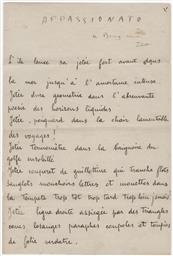 APPASSIONATO
S'il lance sa jetée fort avant dans
la mer jusqu'à l'amertume intense.
Jetée dure géométrie dans l'abreuvante
poésie des horizons liquides
Jetée, poignard dans la chair lamentable
des voyages!
Jetée Termomètre dans la baignoire du
golfe
Jetée couperet de guillotine qui tranche flots
sanglots mouchoirs lettres et mouettes dans
la Tempête Trop tôt trop tard Trop loin jamais!
Jetée ligne droite assiégée par des Triangles
cones losanges paraphes coupoles et toupies
de folie verdatre.